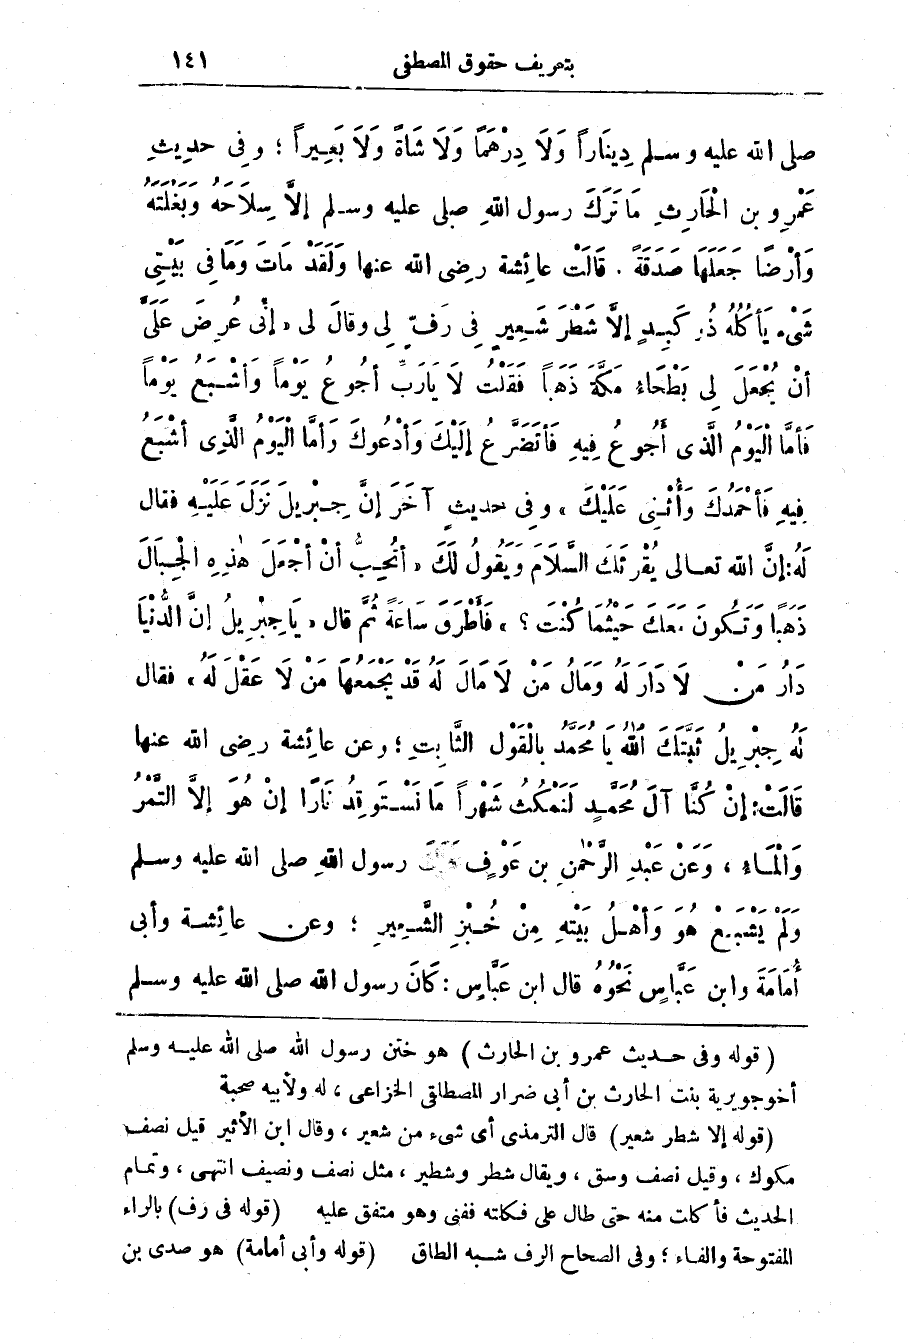 بتعريف حقوق المصطفى ١٤١
صلى الله عليه وسلم دِينَاراً وَلَا دِرْهَمًا وَلَا شَاةً وَلَا بَعِيراً ؛ وفى حديثِ
عَمْرِو بن الْحَارِثِ مَا تَرَكَ رسول اللهِ صلى عليه وسلم إلَّا سِلَاحَهُ وَبَغْلَتَهُ
وَأَرْضًا جَعَلَهَا صَدَقَةً . قَالَتْ عائشة رضى الله عنها وَلَقَدْ مَاتَ وَمَا فى بَيْتِى
شَىْءٌ يَأكُلُهُ ذُو كَبِدٍ إلَّا شَطْرَ شَعِيرٍ فى رَفٍّ لِى وقالَ لى «إنِّى عُرِضَ عَلَىَّ
أنْ يُجْعَلَ لِى بَطْحَاءُ مَكَّةَ ذَهَباً فَقُلْتُ لَا يَارَبِّ أجُوعُ يَوْماً وَأَشْبَعُ يَوْماً
فَأمَّا الْيَوْمُ الَّذى أَجُوعُ فِيهِ فَأتَضَرَّعُ إلَيْكَ وَأَدْعُوكَ وَأمَّا الْيَوْمُ الَّذِى أَشْبَعُ
فِيهِ فَأحْمَدُكَ وَأُثْنِى عَلَيْكَ» وفى حديثٍ آخَرَ إنَّ جِبْرِيلَ نَزَلَ عَلَيْهِ فقال
لَهُ: إنَّ الله تعالى يُقْرِئكَ السَّلَامَ وَيَقُولُ لَكَ «أتُحِبُّ أنْ أجْعَلَ هٰذِهِ الْجِبَالَ
ذَهَبًا وَتَكُونَ مَعَكَ حَيْثُمَا كُنْتَ ؟» فَأَطْرَقَ سَاعَةً ثُمَّ قال «يَا جِبْرِيلُ إنَّ الدُّنْيَا
دَارُ مَنْ لَا دَارَ لَهُ وَمَالُ مَنْ لَا مَالَ لَهُ قَدْ يَجْمَعُهَا مَنْ لَا عَقْلَ لَهُ» فقال
لَهُ جِبْرِيلُ ثَبَّتَكَ اللهُ يَا مُحَمَّدُ بالْقَوْلِ الثَّابِتِ ؛ وعن عائِشة رضى الله عنها
قَالَتْ: إنْ كُنَّا آلَ مُحَمَّدٍ لَنَمْكُثُ شَهْراً مَا نَسْتَوقِدُ نَارًا إنْ هُوَ إلَّا التَّمْرُ
وَالْمَاءُ ، وَعَنْ عَبْدِ الرَّحْمٰنِ بن عَوْفٍ رسول اللهِ صلى الله عليه وسلم
وَلَمْ يَشْبَعْ هُوَ وَأَهْلُ بَيْتِهِ مِنْ خُبْزِ الشَّعِيرِ ؛ وعن عائشة وأبى
أُمَامَةَ وابن عَبَّاسٍ نَحْوُهُ قال ابن عَبَّاسٍ : كَانَ رسول الله صلى الله عليه وسلم
( قوله وفى حديث عمرو بن الحارث ) هو ختن رسول الله صلى الله عليه وسلم
أخوجويرية بنت الحارث بن أبى ضرار المصطلقى الخزاعى ، له ولأبيه صحبة
(قوله إلا شطر شعير) قال الترمذى أى شىء من شعير ، وقال ابن الأثير قيل نصف
مكوك ، وقيل نصف وسق ، ويقال شطر وشطير ، مثل نصف ونصيف انتهى ، وتمام
الحديث فأكلت منه حتى طال على فكلته ففنى وهو متفق عليه (قوله فى رف) بالراء
المفتوحة والفاء ؛ وفى الصحاح الرف شبه الطاق (قوله وأبى أمامة) هو صدى بن